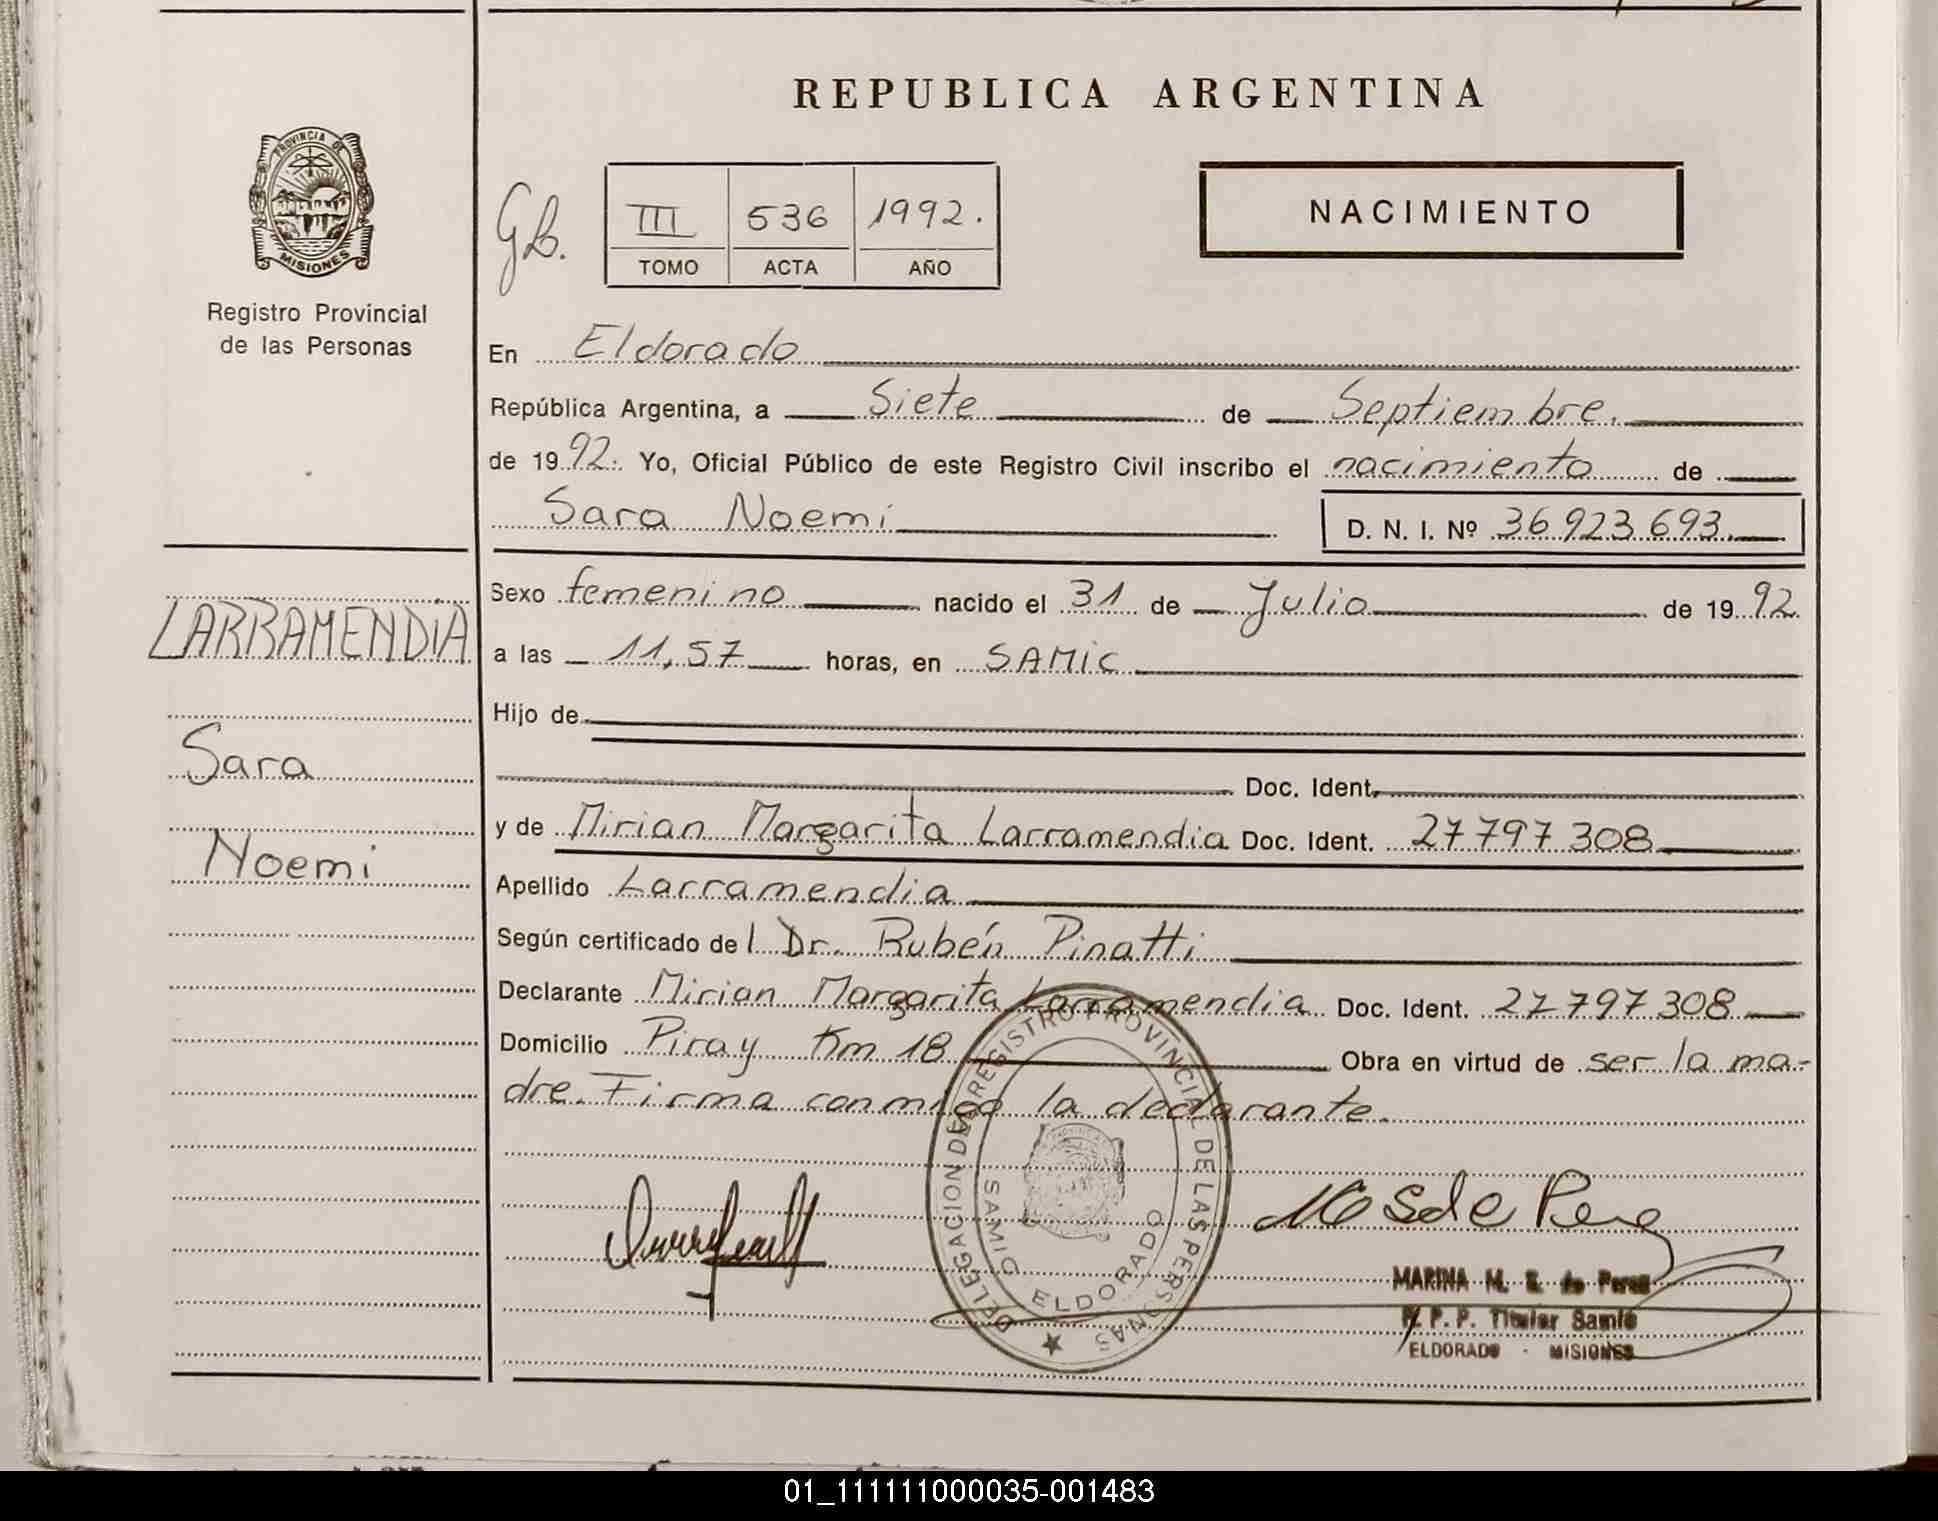 REPUBLICA ARGENTINA
PROVINCIA DE
MISIONES
Registro Provincial
de las Personas
LARRAMENDIA
Sara
Noemi
GB.
III 536 1992.
TOMO ACTA AÑO
NACIMIENTO
En Eldorado
República Argentina, a Siete de Septiembre.
de 1992. Yo, Oficial Público de este Registro Civil inscribo el nacimiento de
Sara Noemi
D. N. I. Nº 36 923 693.
Sexo femenino nacido el 31 de Julio de 1992.
a las 11,57 horas, en SAMIC
Hijo de
Doc. Ident.
y de Mirian Margarita Larramendia Doc. Ident. 27 797 308
Apellido Larramendia
Según certificado del Dr. Rubén Pinatti
Declarante Mirian Margarita Larramendia Doc. Ident. 27 797 308
Domicilio Piray Km 18 Obra en virtud de ser la ma-
dre. Firma conmigo la declarante.
DELEGACION DEL REGISTRO PROVINCIAL DE LAS PERSONAS
SAMIC ELDORADO
MARINA M. S. de Perez
R. P. P. Titular Samic
ELDORADO - MISIONES
01_111111000035-001483